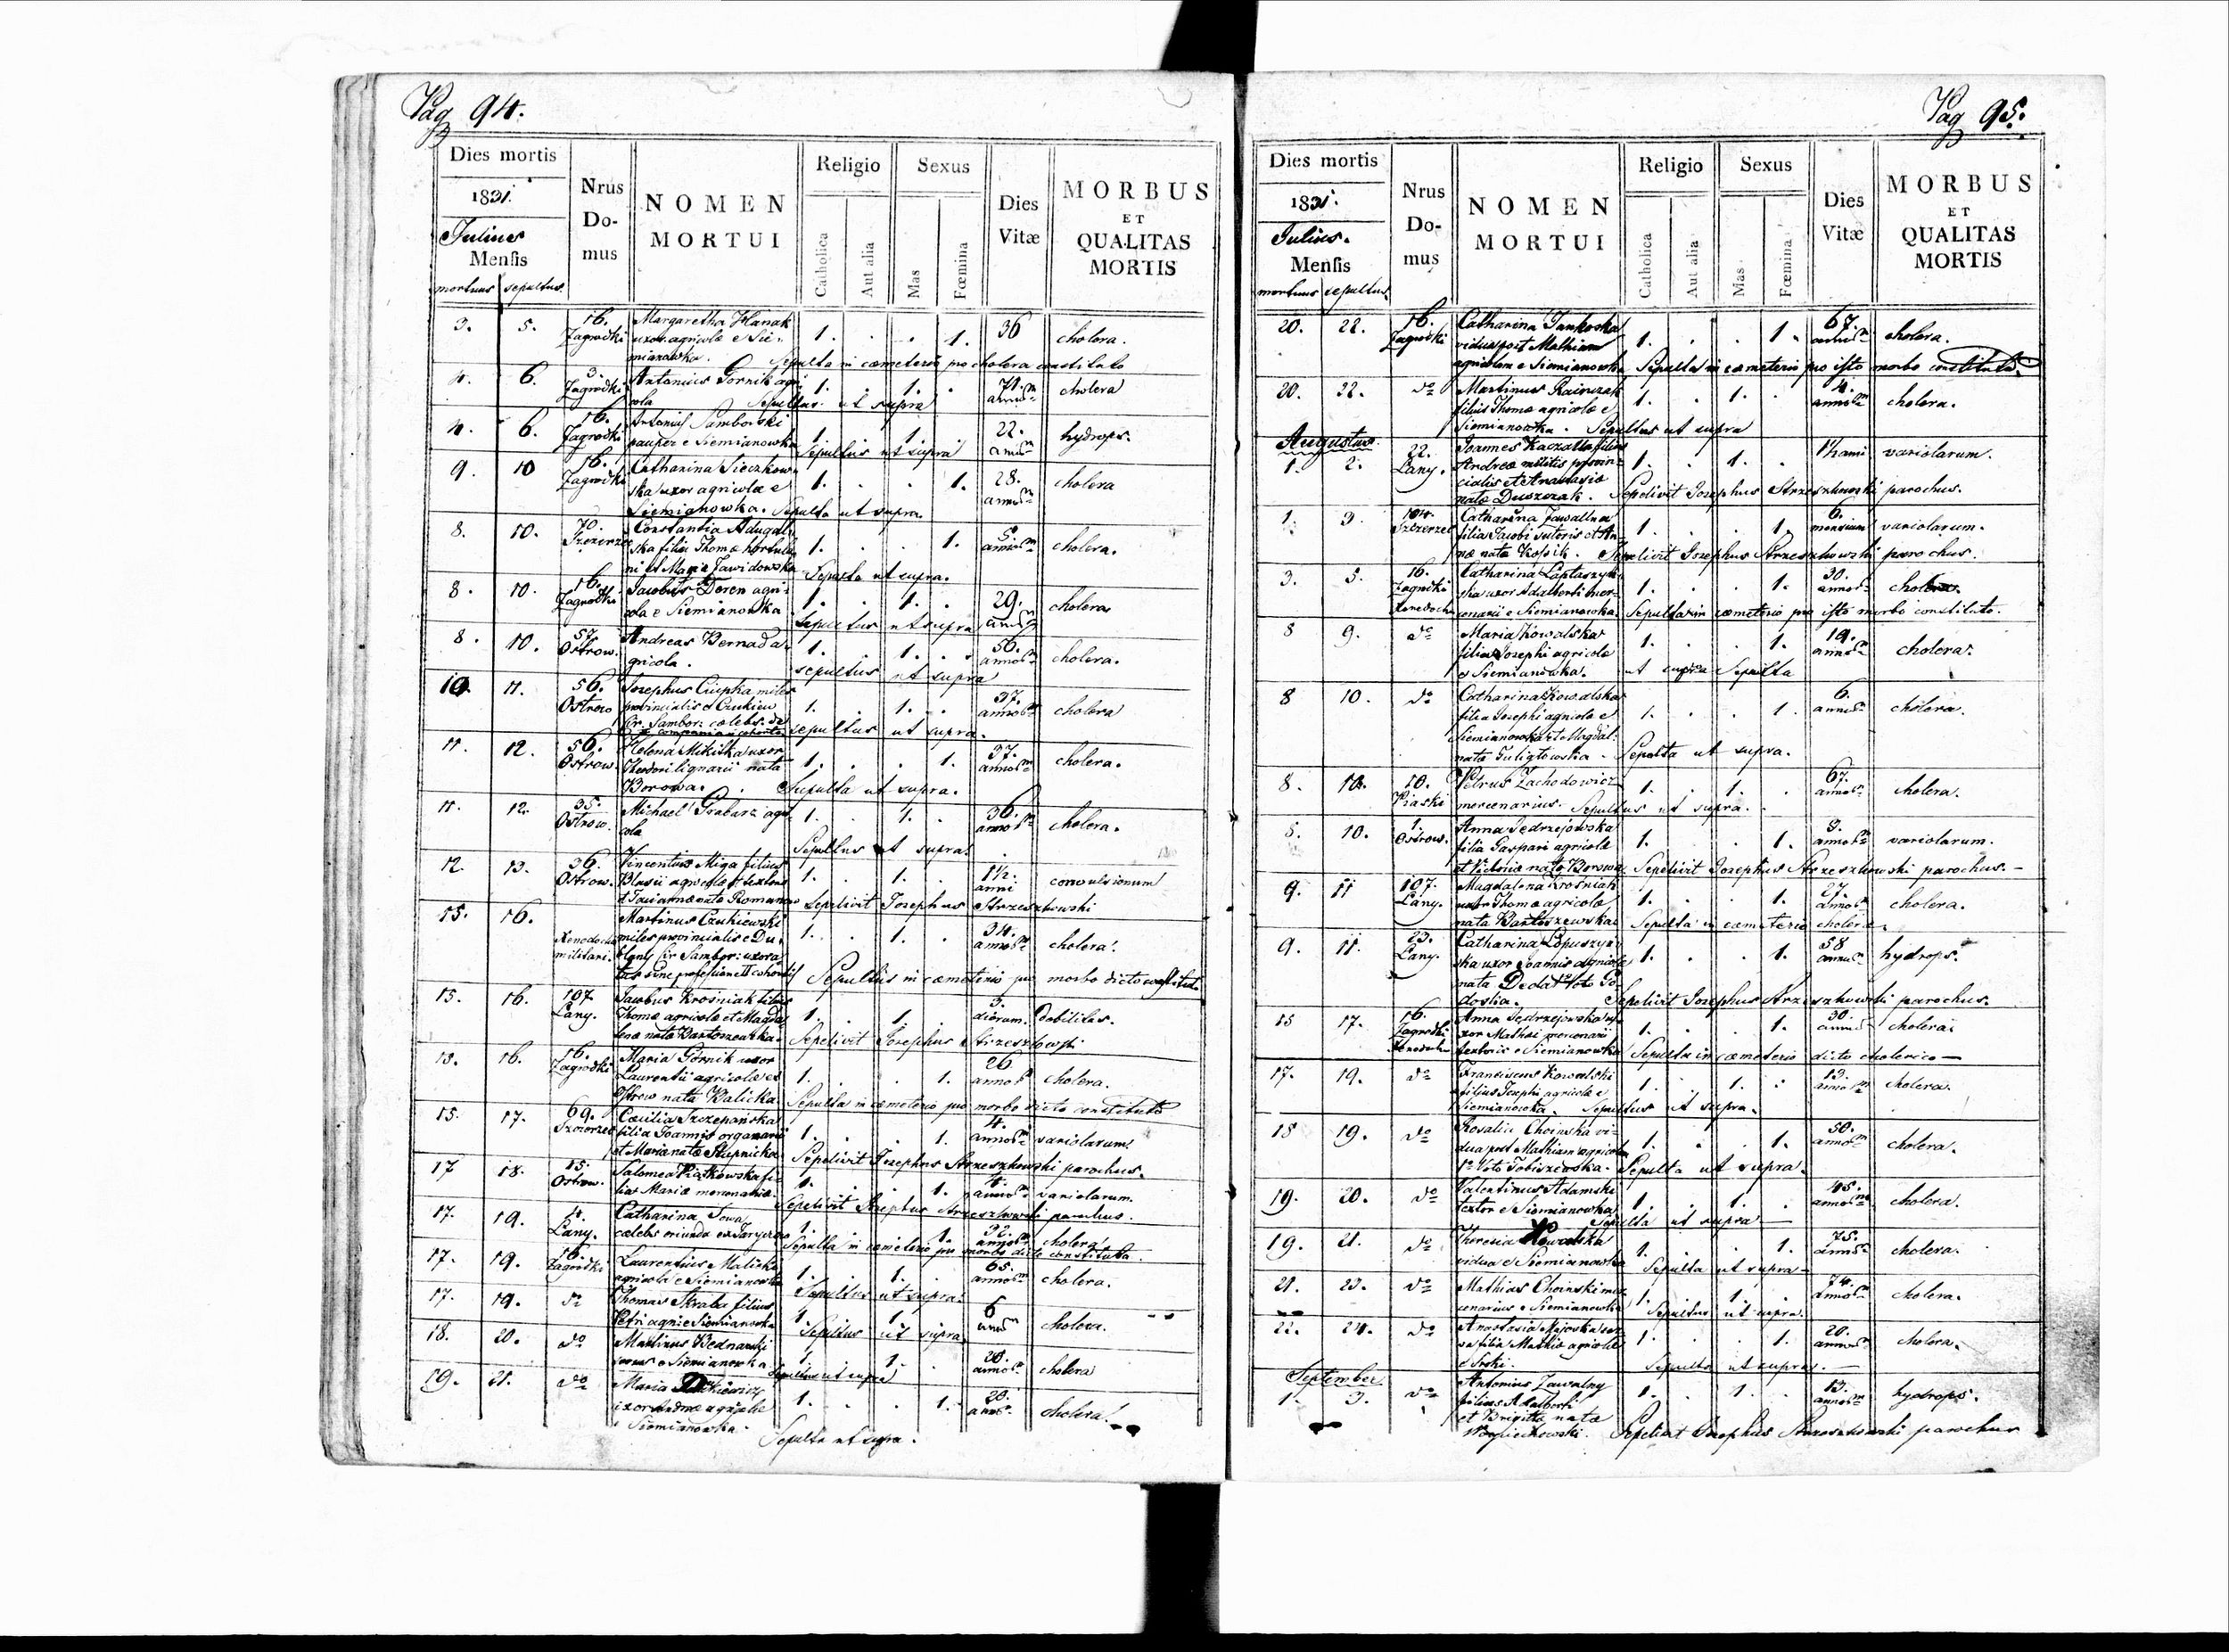 Pag 94.
Dies mortis
1831.
Julius
Mensis
mortuus sepultus
Nrus Do- mus
NOMEN MORTUI
Religio
Catholica
Aut alia
Sexus
Mas
Fœmina
Dies Vitæ
MORBUS ET QUALITAS MORTIS
3. 5. 16. Zagrodki Margaretha Hanak 1. . . 1. 36 cholera.
uxor agricolæ e Sie-
mianowka. Sepulta in cæmeterio pro cholera constituto
4. 6. 3. Zagrodki Antonius Gornik agri 1. . 1. . 71. annor. cholera
cola Sepultus ut supra
4. 6. 16. Zagrodki Antonius Samborski 1. 1. 22. hydrops.
pauper e Siemianowka Sepultus ut supra
9. 10 16. Zagrodki Catharina Sieczkow 1. . . 1. 28. annor. cholera
ska uxor agricolæ e
Siemianowka. Sepulta ut supra.
8. 10. 70. Szczerzec Constantia 1. . . 1. 5. annorum cholera.
ska filia Thomæ hortula
ni et Mariæ Zawidowska Sepulta ut supra.
8. 10. 16. Zagrodki Jacobus Doren agri- 1. . 1. . 29. cholera
cola e Siemianowka Sepultus ut supra
8. 10. 57. Ostrow. Andreas Bernad a- 1. 1. . . 56. annor. cholera.
gricola. sepultus ut supra
10. 11. 56. Ostrow Josephus Ciupka miles 1. . 1. . 37. annor. cholera
provincialis e Czukiew
Cir. Sambor: cælebs. de sepultus ut supra.
11. 12. 56. Ostrow. Helena Mikitka uxor 1. . . 1. 37. annor. cholera.
Theodori lignarii nata
Borowa. Sepulta ut supra.
11. 12. 35. Ostrow. Michael Grabarz agri 1. . 1. . 36. annor. cholera.
cola Sepultus ut supra.
12. 13. 36. Ostrow. Vincentius Miga filius 1. . 1. . 1½. anni convulsionum
Blasii agricolæ et textoris
et nata Romano Sepelivit Josephus Strzeszkowski
15. 16. Xenodochio militari. Martinus Czukiewski 1. . 1. . 34. annor. cholera.
miles provincialis e Du-
blany Cir Sambor: uxora-
tus sine professione cohortis Sepultus in cæmeterio pro morbo dicto constituto
15. 16. 107 Lany. Jacobus Krośniak filius 1. . 1. . 3. dierum. Debilitas.
Thomæ agricolæ et Magda
lenæ nata Bartoszewska. Sepelivit Josephus Strzeszkowski
15. 16. 16. Zagrodki Maria Górnik uxor 1. . . 1. 26 annor. cholera.
Laurentii agricolæ ex
Ostrow nata Kalicka. Sepulta in cæmeterio pro morbo dicto constituto
15. 17. 69. Szczerzec Cæcilia Szczepańska 1. . . 1. 4. annor. variolarum.
filia Joannis organarii
et Maria nata Stupnicka. Sepelivit Josephus Strzeszkowski parochus.
17 18. 15. Ostrow. Salomea Piatkowska fi- 1. . . 1. 4. annor. variolarum.
lia Mariæ mercenariæ. Sepelivit Josephus Strzeszkowski parochus.
17. 19. 4. Lany. Catharina Sowa 1. 1. 32. annor. cholera.
cælebs oriunda ex Sepulta in cæmeterio pro morbo dicto constituto.
17. 19. 16. Zagrodki Laurentius Malicki 1. . 1. . 65. annor. cholera.
agricola e Siemianowka Sepultus ut supra.
17. 19. do Thomas Skraba filius 1. 1. 6 annor. cholera.
Petri agri e Siemianowka Sepultus ut supra
18. 20. do Martinus Bednarski 1. 1. . 28. annor. cholera
e Siemianowka Sepultus ut supra
19. 21. do Maria 1. . . 1. 20. annor. cholera.
uxor Andreæ agricolæ
e Siemianowka. Sepulta ut supra.
Pag 95.
Dies mortis
1831.
Julius.
Mensis
mortuus sepultus
Nrus Do- mus
NOMEN MORTUI
Religio
Catholica
Aut alia
Sexus
Mas
Fœmina
Dies Vitæ
MORBUS ET QUALITAS MORTIS
20. 22. 16. Zagrodki Catharina Jankoska 1. . . 1. 67. annor. cholera.
vidua post Mathiam
agricolam e Siemianowka Sepulta in cæmeterio pro isto morbo constituto
20. 22. do Martinus Rainczak 1. . 1. . 4. annor. cholera.
filius Thomæ agricolæ e
Siemianowka. Sepultus ut supra
Augustus
1. 2. 22. Lany. Joannes Kaczalla filius 1. . 1. . 1½ anni variolarum.
Andreæ militis provin-
cialis et Anastasiæ
nata Duszczak. Sepelivit Josephus Strzeszkowski parochus.
1. 3. 104. Szczerzec Catharina Zawallna 1. . . 1. 6. mensium variolarum.
filia Jacobi sutoris et An-
næ nata Kosik. Sepelivit Josephus Strzeszkowski parochus.
3. 5. 16. Zagrodki Xenodochi Catharina Łaptaszyń- 1. . . 1. 30. annor. cholera.
ska uxor Adalberti mer-
cenarii e Siemianowka. Sepulta in cæmeterio pro isto morbo constituto.
8 9. do Maria Kowalska 1. . . 1. 19. annor. cholera.
filia Josephi agricolæ
e Siemianowka. ut supra Sepulta
8 10. do Catharina Kowalska 1. . . 1. 6. annor. cholera.
filia Josephi agricolæ e
Siemianowka et Magdal.
nata Tuligłowska. Sepulta ut supra.
8. 10. 10. Piaski Petrus Zachodowicz 1. . 1. . 67. annor. cholera.
mercenarius. Sepultus ut supra.
8. 10. 1. Ostrow. Anna Jędrzejowska 1. . 1. 3. annor. variolarum.
filia Gaspari agricolæ
et Victoriæ nata Borowa. Sepelivit Josephus Strzeszkowski parochus.
9. 11 107. Lany. Magdalena Krośniak 1. . . 1. 27. annor. cholera.
uxor Thomæ agricolæ
nata Bartoszewska Sepulta in cæmeterio choleræ.
9. 11. 23. Lany. Catharina Łopuszyń- 1. . . 1. 58 annor. hydrops.
ska uxor Joannis agricolæ
nata Sepelivit Josephus Strzeszkowski parochus.
15 17. 16. Zagrodki Anna Jędrzejowska u- 1. . . 1. 30. annor. cholera.
xor Mathæi mercenarii
textoris e Siemianowka Sepulta in cæmeterio dicto cholerico
17. 19. do Franciscus Kowalski 1. . 1. . 13. annor. cholera.
filius Josephi agricolæ e
Siemianowka. Sepultus ut supra.
18 19. do Rosalia Choinska vi- 1. . . 1. 50. annor. cholera.
dua post Mathiam agricolam
1o Voto Tobiszewska. Sepulta ut supra.
19. 20. do Valentinus Adamski 1. . 1. . 45. annor. cholera.
textor e Siemianowka Sepulta ut supra
19. 21. do Theresia Kowalska 1. . . 1. 75. annor. cholera.
vidua e Siemianowka Sepulta ut supra
21. 23. do Mathias Choinski mer- 1. . 1. . 74. annor. cholera.
cenarius e Siemianowka Sepultus ut supra.
22. 24. do Anastasia 1. . . 1. 20. annor. cholera.
filia Mathiæ agricolæ
Sepulta ut supra.
September
1. 3. do Antonius Zawalny 1. . 1. . 13. annor. hydrops.
filius Adalberti
et Brigitta nata
Woyciechowski. Sepelivit Josephus Strzeszkowski parochus